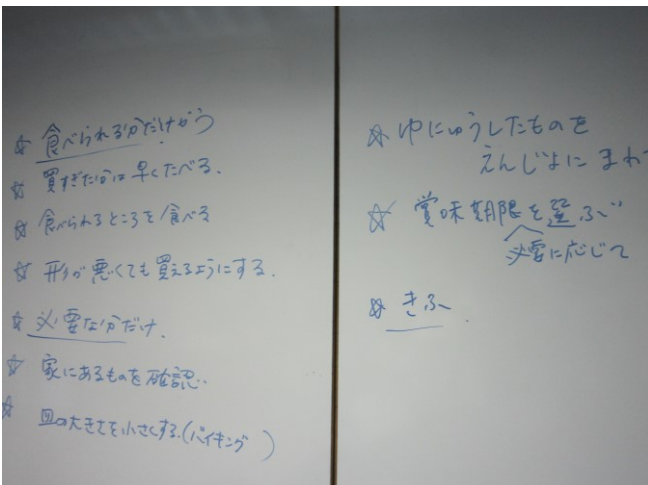 ☆ 食べられる分だけかう
☆ 買すぎた分は早くたべる.
☆ 食べられるところを食べる
☆ 形が悪くても買えるようにする.
☆ 必要な分だけ.
☆ 家にあるものを確認.
☆ 皿の大きさを小さくする.(バイキング)
☆ ゆにゅうしたものを
えんじょにまわ
☆ 賞味期限を選ぶ
必要に応じて
☆ きふ.